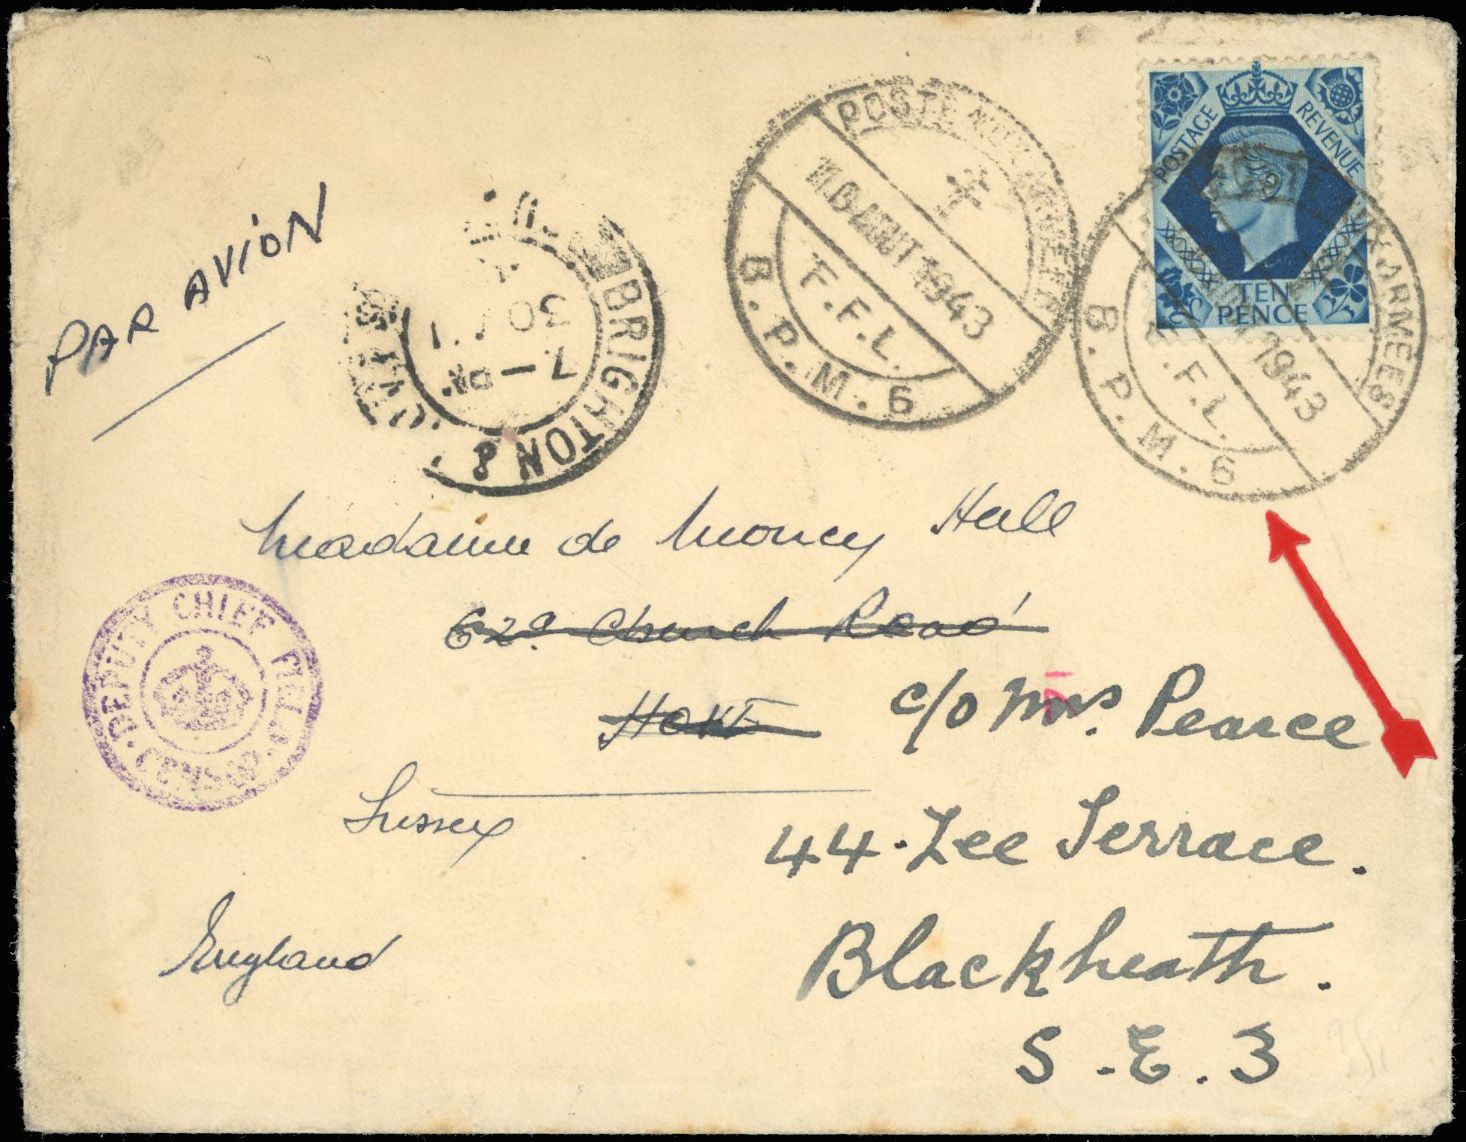 POSTAGE REVENUE
TEN
PENCE
POSTE AUX ARMEES
10 AOUT 1943
F.F.L.
B.P.M.6
AUX ARMEES
1943
F.F.L.
B.P.M.6
BRIGHTON 8
7 — PM
30
PAR AVION
Madame de Moncy Hall
62a Church Road
HOVE
c/o Mrs. Pearce
Sussex
44. Lee Terrace.
England
Blackheath.
S.E.3
DEPUTY CHIEF FIELD CENSOR